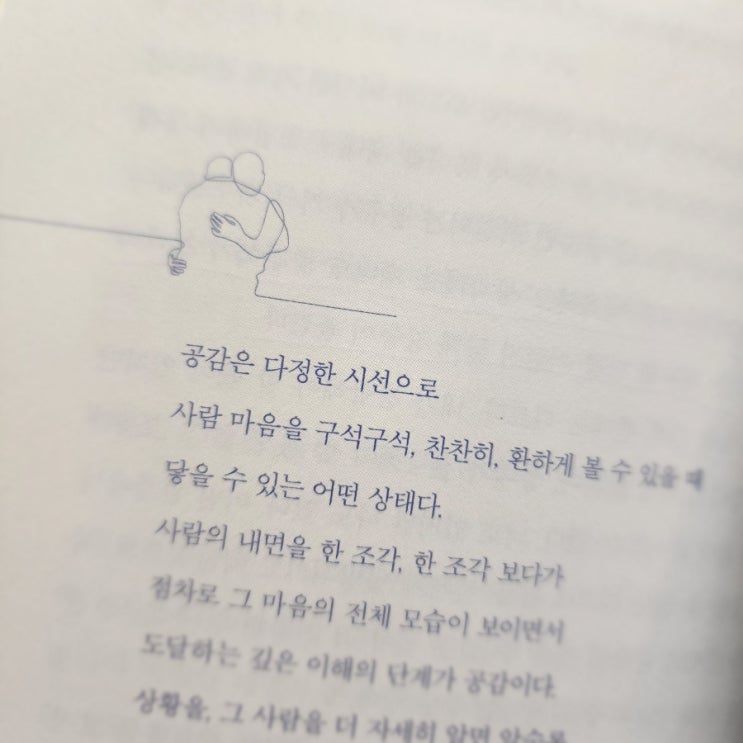 공감은 다정한 시선으로
사람 마음을 구석구석, 찬찬히, 환하게 볼 수 있을 때
닿을 수 있는 어떤 상태다.
사람의 내면을 한 조각, 한 조각 보다가
점차로 그 마음의 전체 모습이 보이면서
도달하는 깊은 이해의 단계가 공감이다.
상황을, 그 사람을 더 자세히 알면 알수록